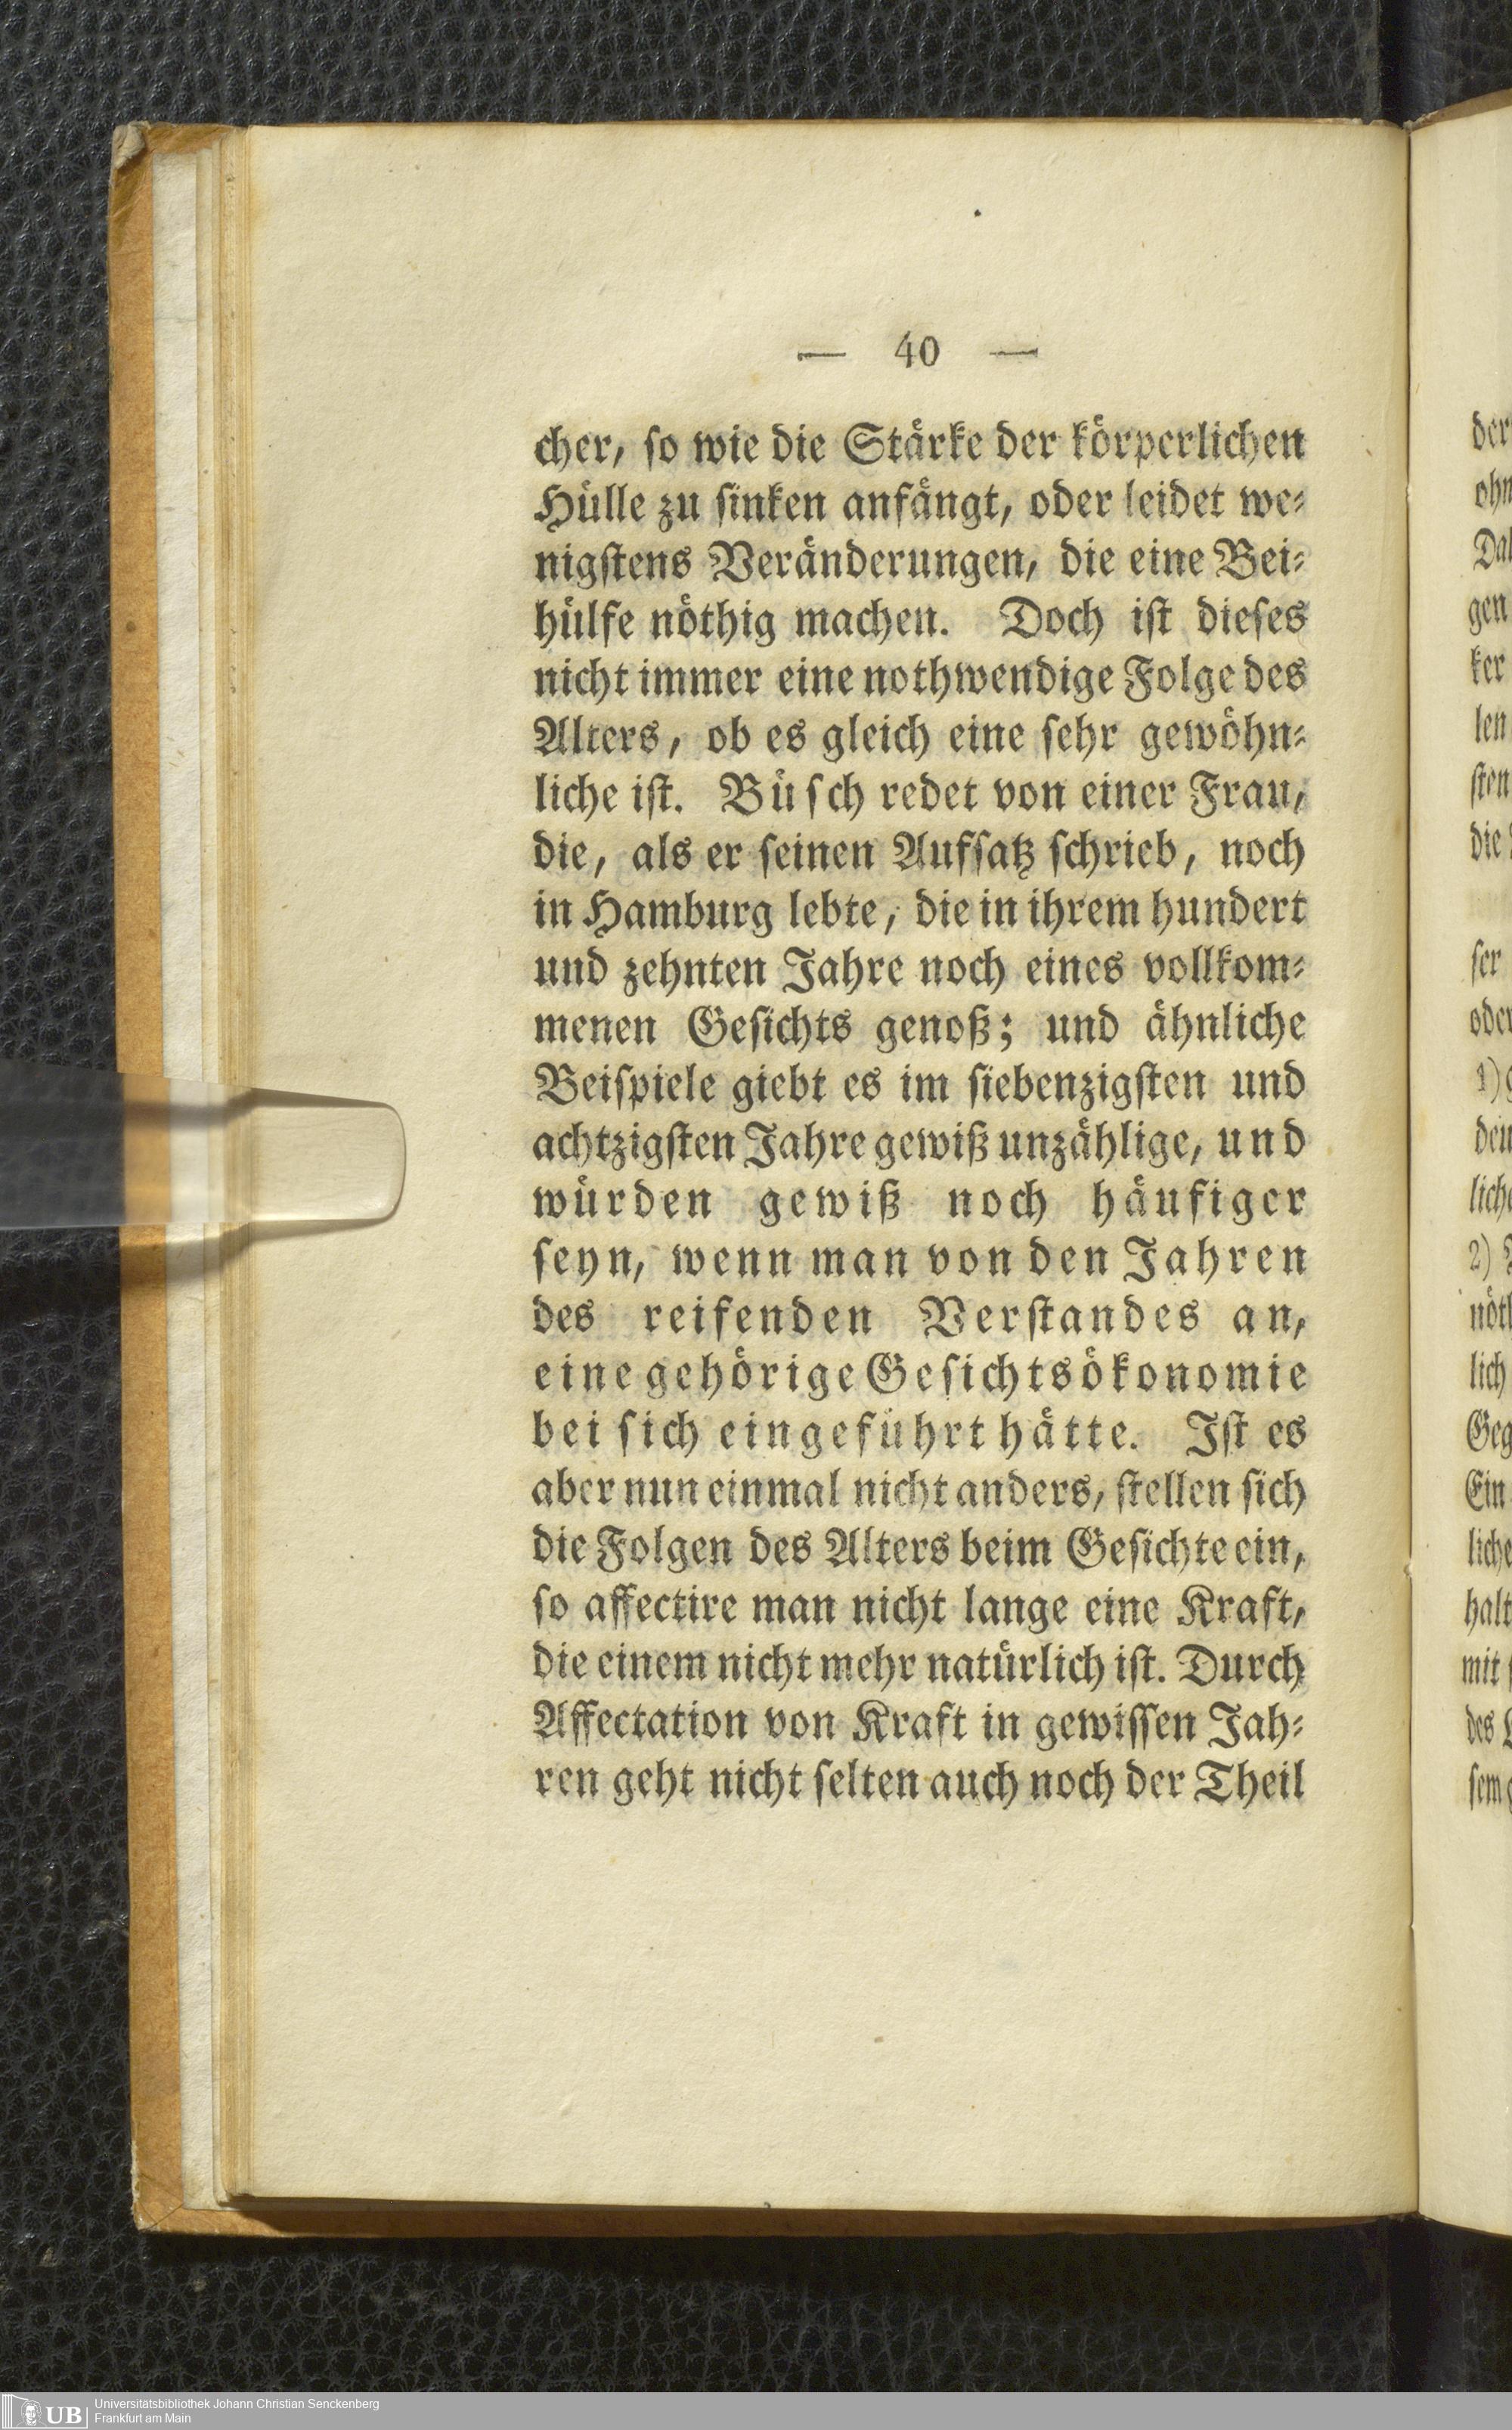 — 40 —
cher, ſo wie die Stärke der körperlichen
Hülle zu ſinken anfängt, oder leidet we⸗
nigſtens Veränderungen, die eine Bei⸗
hülfe nöthig machen. Doch iſt dieſes
nicht immer eine nothwendige Folge des
Alters, ob es gleich eine ſehr gewöhn⸗
liche iſt. Büſch redet von einer Frau,
die, als er ſeinen Aufſatz ſchrieb, noch
in Hamburg lebte, die in ihrem hundert
und zehnten Jahre noch eines vollkom⸗
menen Geſichts genoß; und ähnliche
Beiſpiele giebt es im ſiebenzigſten und
achtzigſten Jahre gewiß unzählige, und
würden gewiß noch häufiger
ſeyn, wenn man von den Jahren
des reifenden Verſtandes an,
eine gehörige Geſichtsökonomie
bei ſich eingeführt hätte. Iſt es
aber nun einmal nicht anders, ſtellen ſich
die Folgen des Alters beim Geſichte ein,
ſo affectire man nicht lange eine Kraft,
die einem nicht mehr natürlich iſt. Durch
Affectation von Kraft in gewiſſen Jah⸗
ren geht nicht ſelten auch noch der Theil
der
gen
ker
len
ſten
die
ſer
oder
1)
2)
lich
Ein
halt
mit
des
UB
Universitätsbibliothek Johann Christian Senckenberg
Frankfurt am Main